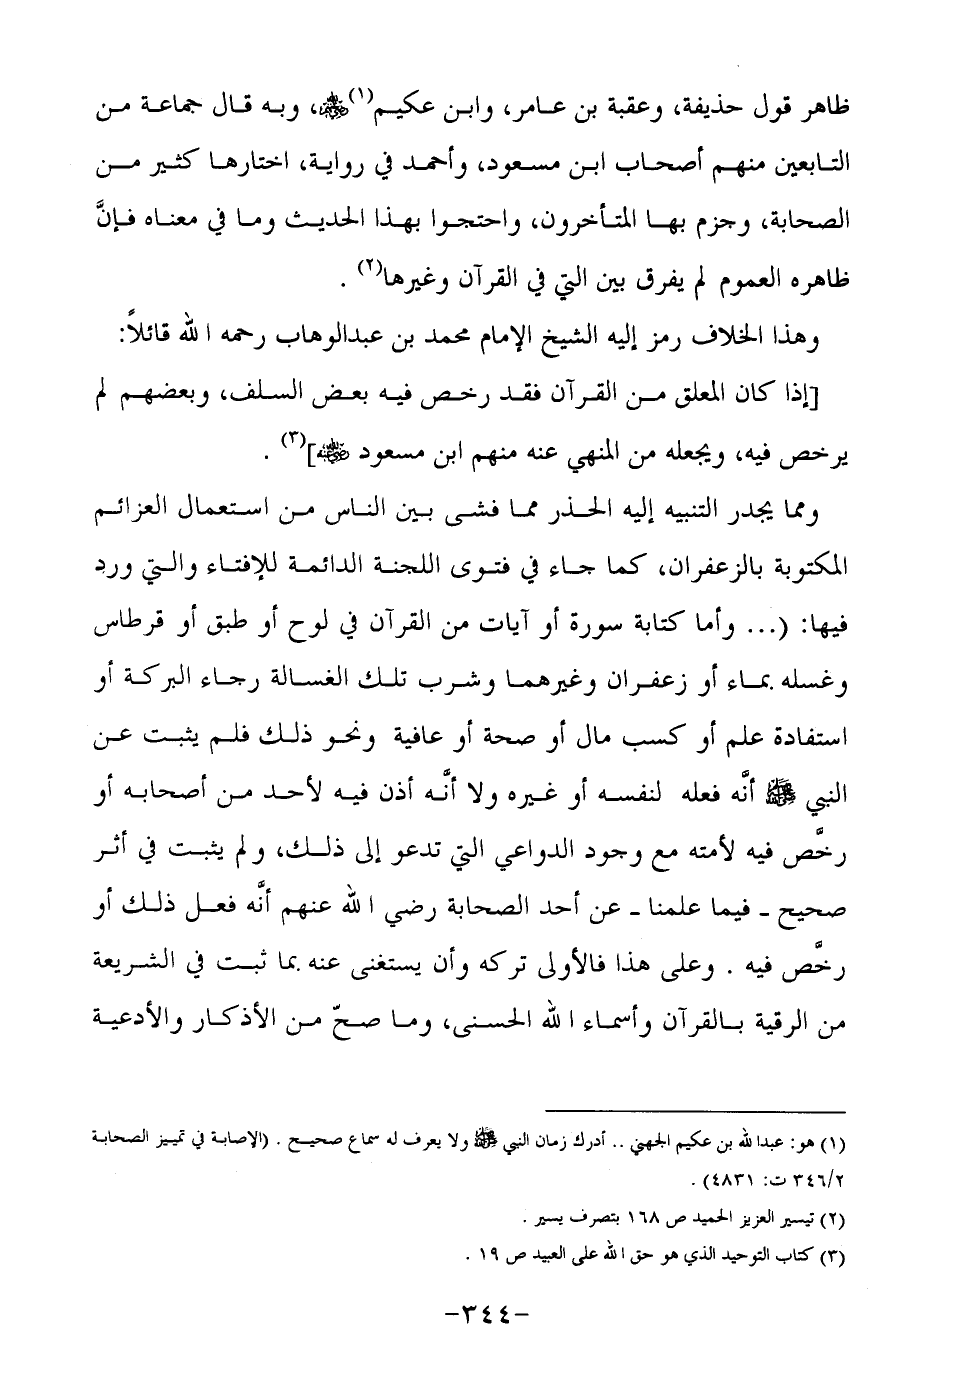 ظاهر قول حذيفة، وعقبة بن عامر، وابن عكيم(١)﵁، وبه قال جماعة من
التابعين منهم أصحاب ابن مسعود، وأحمد في رواية، اختارها كثير من
الصحابة، وجزم بها المتأخرون، واحتجوا بهذا الحديث وما في معناه فإنَّ
ظاهره العموم لم يفرق بين التي في القرآن وغيرها(٢) .
وهذا الخلاف رمز إليه الشيخ الإمام محمد بن عبدالوهاب رحمه الله قائلاً:
[إذا كان المعلق من القرآن فقد رخص فيه بعض السلف، وبعضهم لم
يرخص فيه، ويجعله من المنهي عنه منهم ابن مسعود ﵁](٣) .
ومما يجدر التنبيه إليه الحذر مما فشى بين الناس من استعمال العزائم
المكتوبة بالزعفران، كما جاء في فتوى اللجنة الدائمة للإفتاء والتي ورد
فيها: (... وأما كتابة سورة أو آيات من القرآن في لوح أو طبق أو قرطاس
وغسله بماء أو زعفران وغيرهما وشرب تلك الغسالة رجاء البركة أو
استفادة علم أو كسب مال أو صحة أو عافية ونحو ذلك فلم يثبت عن
النبي ﷺ أنَّه فعله لنفسه أو غيره ولا أنَّه أذن فيه لأحد من أصحابه أو
رخَّص فيه لأمته مع وجود الدواعي التي تدعو إلى ذلك، ولم يثبت في أثر
صحيح ـ فيما علمنا ـ عن أحد الصحابة رضي الله عنهم أنَّه فعل ذلك أو
رخَّص فيه . وعلى هذا فالأولى تركه وأن يستغنى عنه بما ثبت في الشريعة
من الرقية بالقرآن وأسماء الله الحسنى، وما صحّ من الأذكار والأدعية
(١) هو: عبدالله بن عكيم الجهني .. أدرك زمان النبي ﷺ ولا يعرف له سماع صحيح . (الإصابة في تمييز الصحابة
٣٤٦/٢ ت: ٤٨٣١) .
(٢) تيسير العزيز الحميد ص ١٦٨ بتصرف يسير .
(٣) كتاب التوحيد الذي هو حق الله على العبيد ص ١٩ .
-٣٤٤-